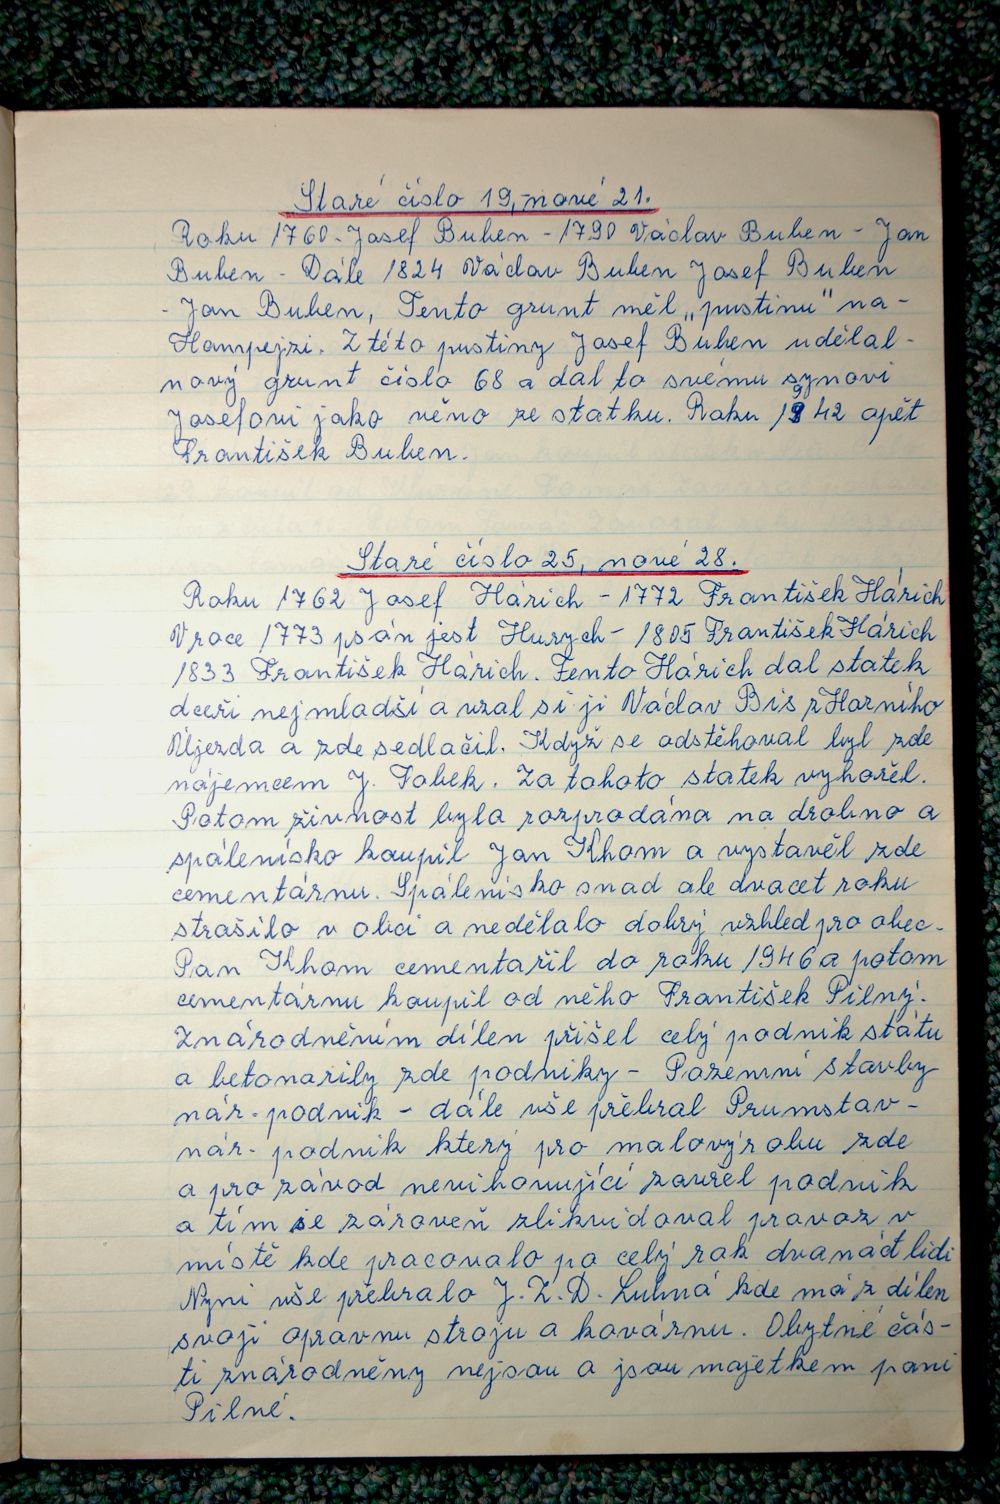 Staré číslo 19, nové 21.
Roku 1760 - Josef Buben - 1790 Václav Buben - Jan
Buben - Dále 1824 Václav Buben Josef Buben
- Jan Buben, Tento grunt měl „pustinu" na -
Hampejzi. Z této pustiny Josef Buben udělal -
nový grunt číslo 68 a dal to svému synovi
Josefovi jako věno ze statku. Roku 1942 opět
František Buben.
Staré číslo 25, nové 28.
Roku 1762 Josef Hárich - 1772 František Hárich
V roce 1773 psán jest Hurych - 1805 František Hárich
1833 František Hárich. Tento Hárich dal statek
dceři nejmladší a vzal si ji Václav Bis z Horního
Újezda a zde sedlačil. Když se odstěhoval byl zde
nájemcem J. Tobek. Za tohoto statek vyhořel.
Potom živnost byla rozprodána na drobno a
spálenisko koupil Jan Khom a vystavěl zde
cementárnu. Spálenisko snad ale dvacet roku
strašilo v obci a nedělalo dobrý vzhled pro obec.
Pan Khom cementařil do roku 1946 a potom
cementárnu koupil od něho František Pilný.
Znárodněním dílen přišel celý podnik státu
a betonařily zde podniky - Pozemní stavby
nár. podnik - dále vše přebral Prumstav -
nár. podnik který pro malovýrobu zde
a pro závod nevihovující zavřel podnik
a tím se zároveň zlikvidoval provoz v
místě kde pracovalo po celý rok dvanáct lidi
Nyni vše přebralo J. Z. D. Lubná kde má z dílen
svoji opravnu stroju a kovárnu. Obytné čás-
ti znárodněny nejsou a jsou majetkem pani
Pilné.